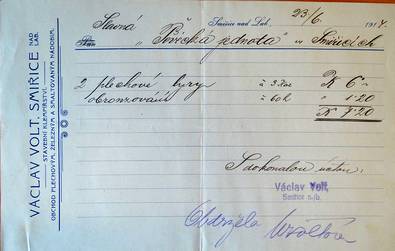 VÁCLAV VOLT, SMIŘICE NAD LAB.
STAVEBNÍ KLEMPÍŘSTVÍ.
OBCHOD PLECHOVÝM, ŽELEZNÝM A SMALTOVANÝM NÁDOBÍM.
Smiřice nad Lab. 23/6 1914.
Slavná
Pan „Pěvecká jednota" v Smiřicích
2 plechové lyry à 3 Kor K 6 –
bronzování à 60 h " 1·20
K 7·20
S dokonalou úctou:
Václav Volt,
Smiřice n./L.
Obdržel